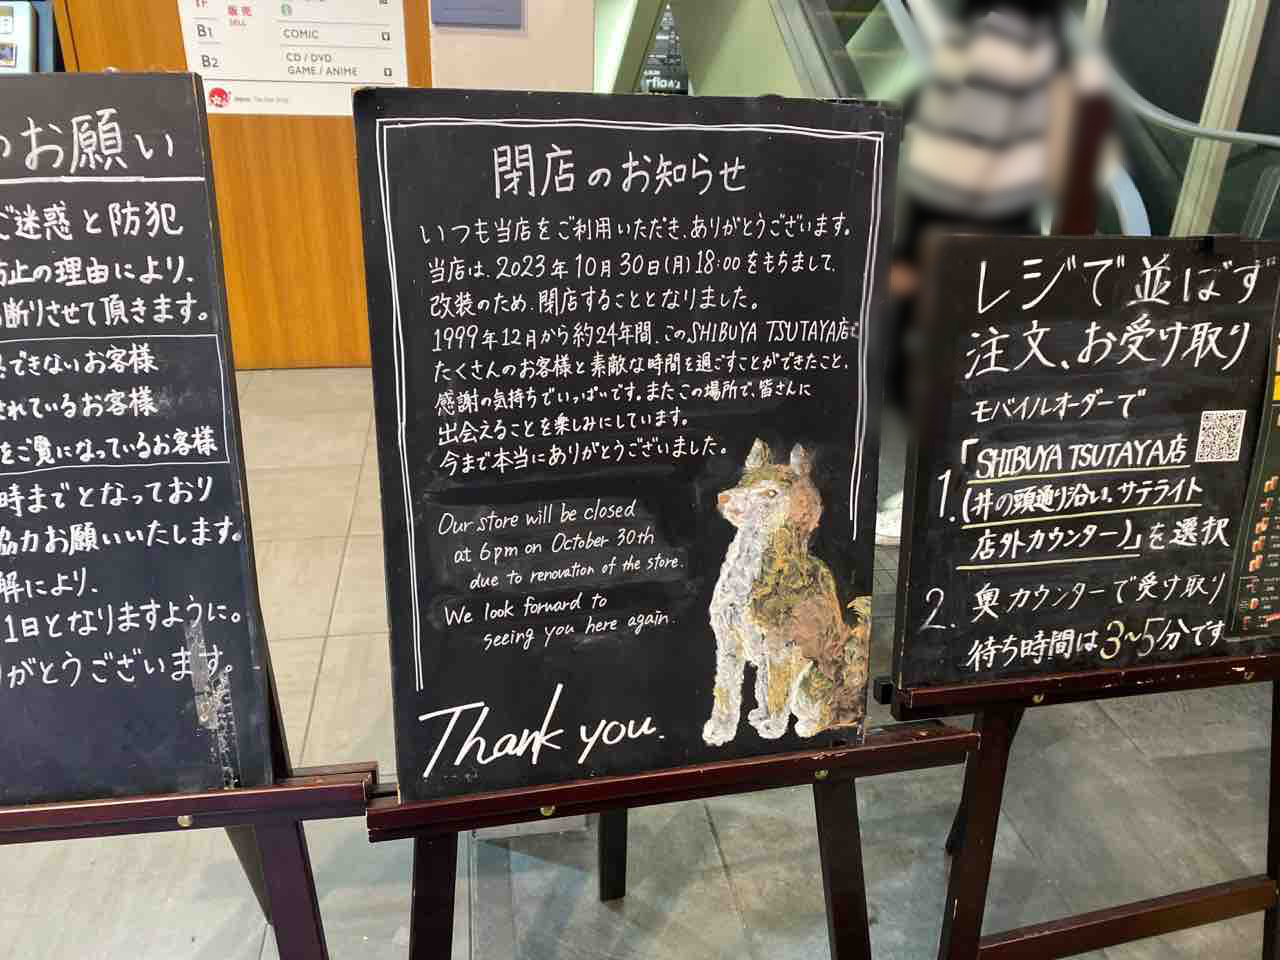 1F 販売
SELL
B1 COMIC
B2 CD / DVD
GAME / ANIME
のお願い
ご迷惑と防犯
防止の理由により、
お断りさせて頂きます。
できないお客様
されているお客様
をご覧になっているお客様
時までとなっており
協力お願いいたします。
解により、
1日となりますように。
りがとうございます。
閉店のお知らせ
いつも当店をご利用いただき、ありがとうございます。
当店は、2023年10月30日(月)18:00をもちまして、
改装のため、閉店することとなりました。
1999年12月から約24年間、このSHIBUYA TSUTAYA店で
たくさんのお客様と素敵な時間を過ごすことができたこと、
感謝の気持ちでいっぱいです。またこの場所で、皆さんに
出会えることを楽しみにしています。
今まで本当にありがとうございました。
Our store will be closed
at 6pm on October 30th
due to renovation of the store.
We look forward to
seeing you here again.
Thank you.
レジで並ばず
注文、お受け取り
モバイルオーダーで
1.「SHIBUYA TSUTAYA店
(井の頭通り沿い、サテライト
店外カウンター)」を選択
2. 奥カウンターで受け取り
待ち時間は3~5分です